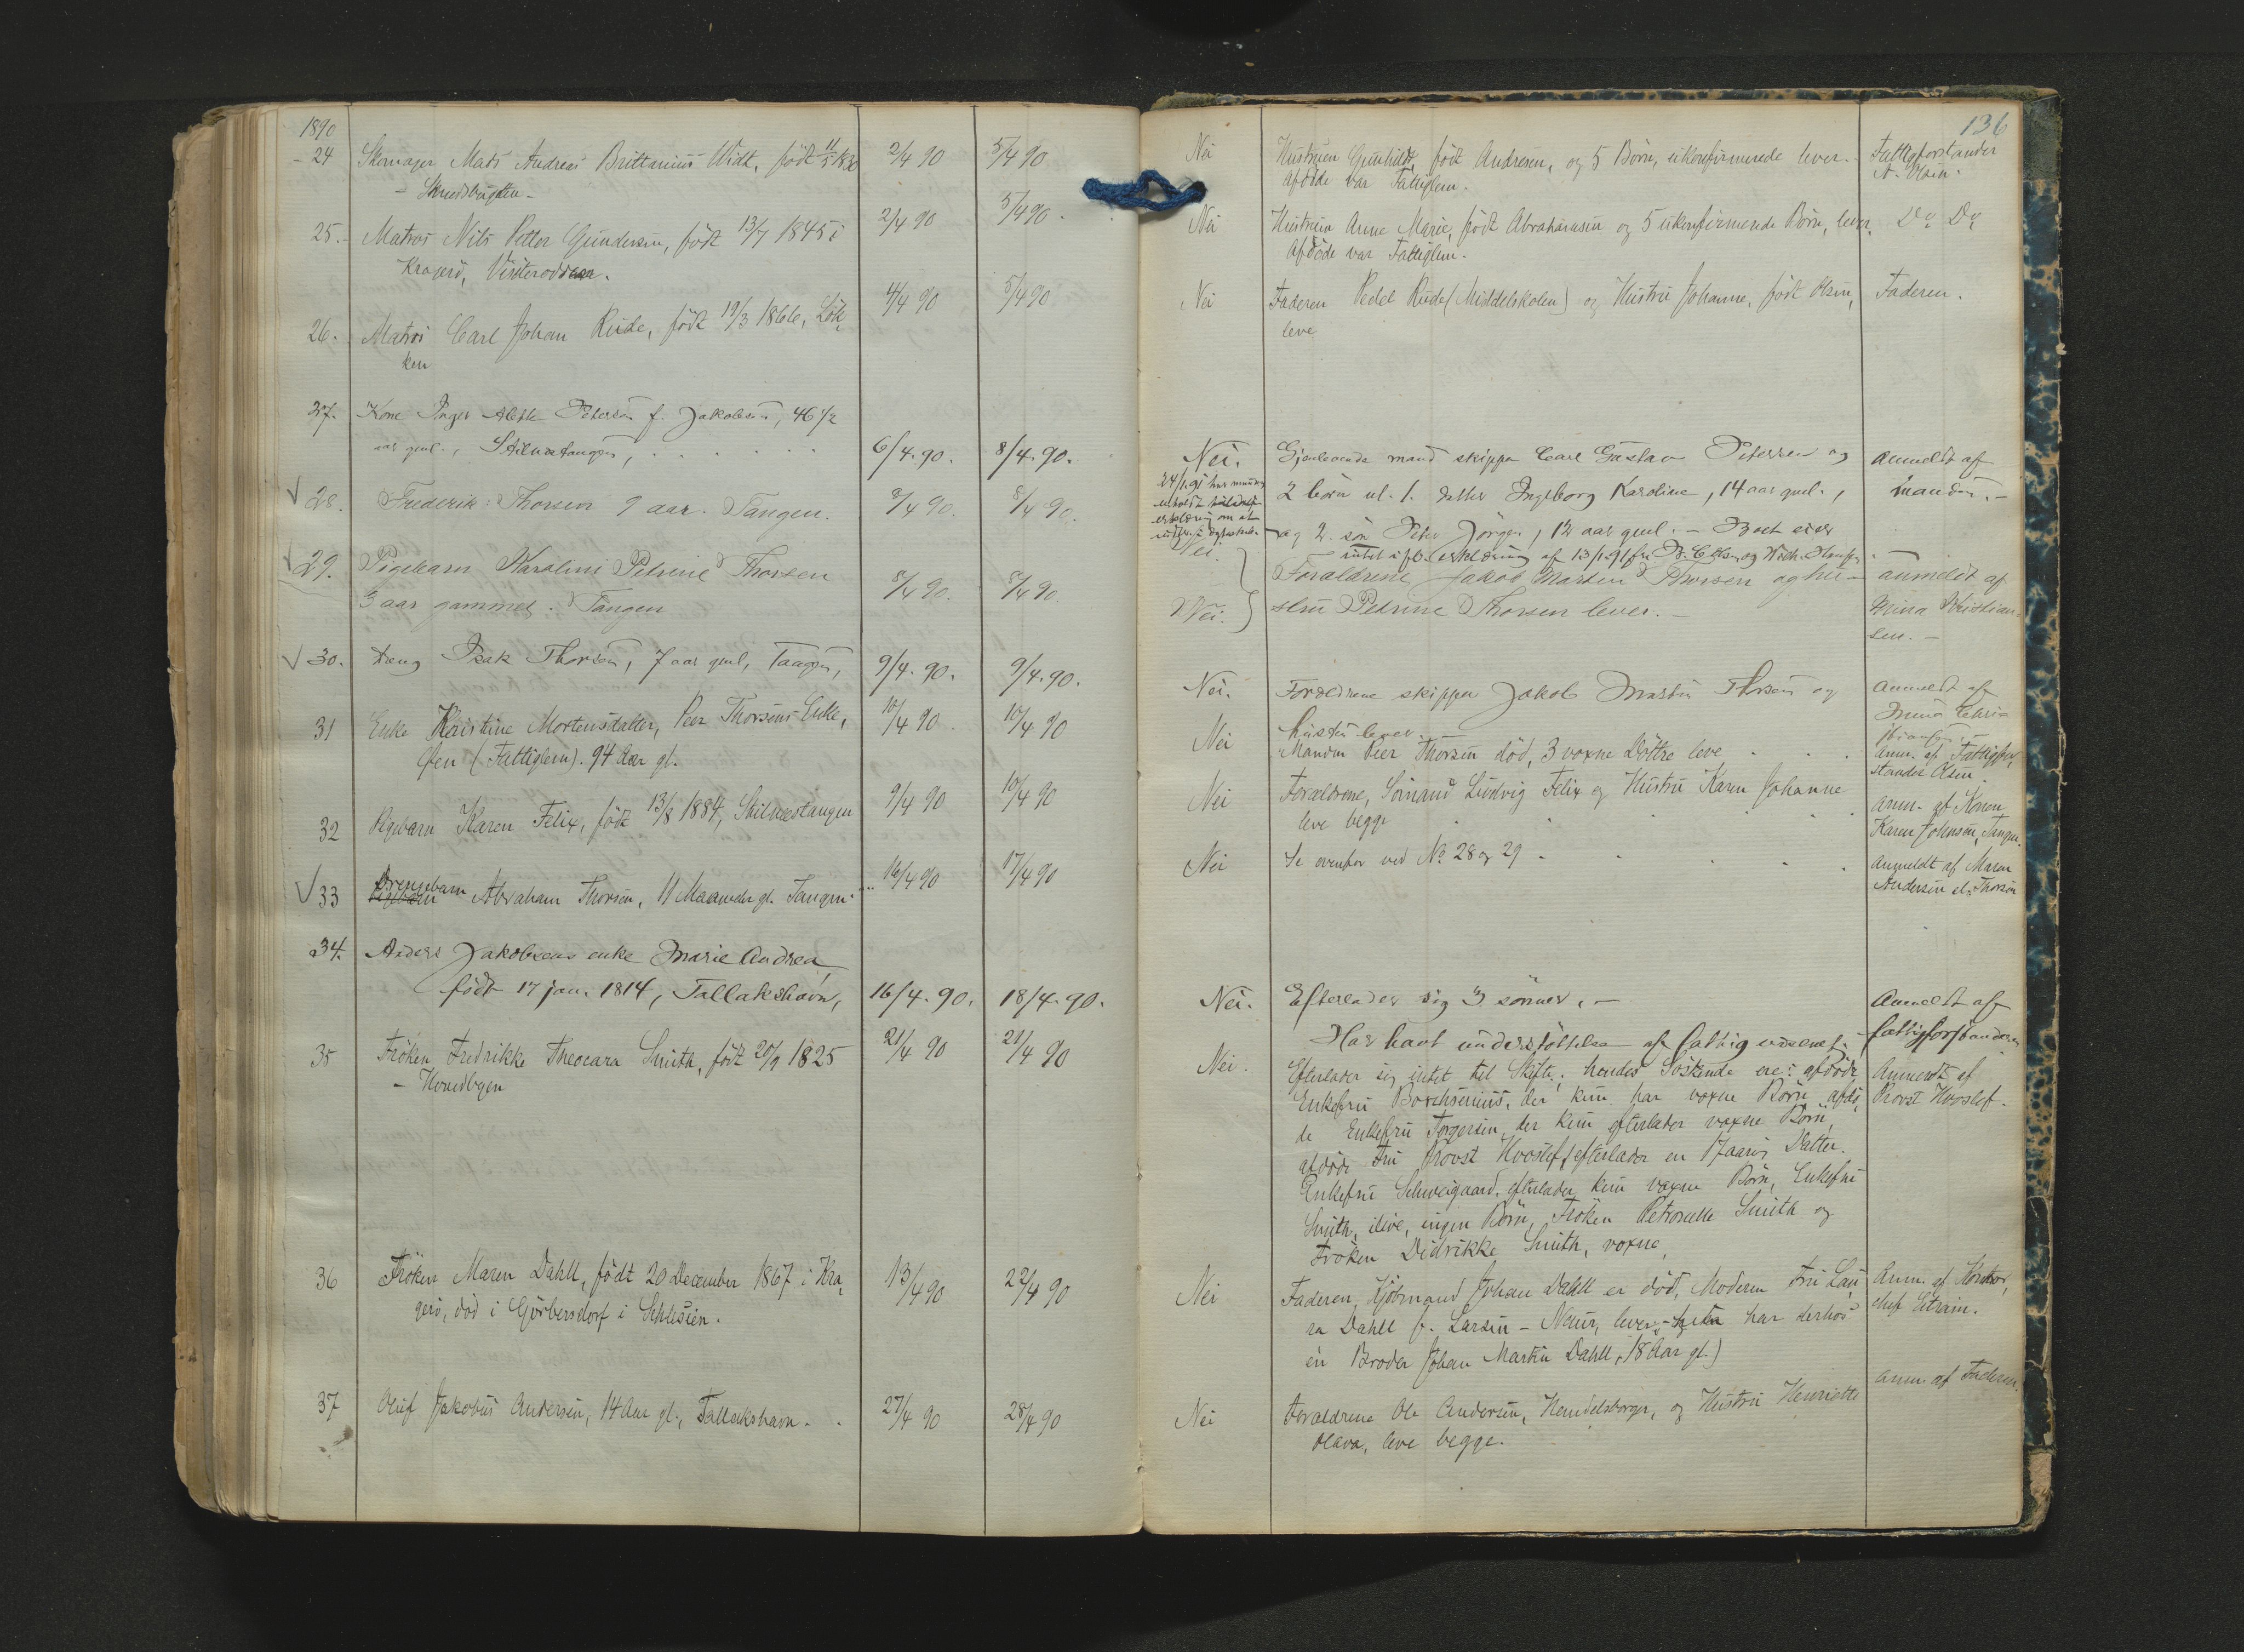 1890
136
24 Skomager Mats Andreas Brittanius Widt, født 11/5 1830 2/4 90 5/4 90
- Skrædbugten -
Nei Hustruen Gunhild, født Andresen, og 5 Børn, ukonfirmerede lever. Fattigforstander
Afdøde var Fattiglem. A. Olsen.
25. Matros Nils Petter Gundersen, født 13/7 1845 i 2/4 90 5/4 90.
Kragerø,
Nei Hustruen Anne Marie, født Abrahamsen og 5 ukonfirmerede Børn, lever. Do Do
Afdøde var Fattiglem.
26. Matros Carl Johan Rude, født 19/3 1866, Løk, 4/4 90 5/4 90
ken
Nei Faderen Pedel Rude (Middelskolen) og Hustru Johanne, født Olsen, Faderen.
leve
27. Kone Inger Alethe Petersen f. Jakobsen, 46 1/2
aar gml., Stilnestangen, 6/4. 90. 8/4. 90.
Nei. Gjenlevende mand skipper Carl Gustav Petersen og Anmeldt af
24/1.91 har manden
2 børn nl. 1. datter Ingeborg Karoline, 14 aar gml., manden. -
og 2. søn Peter Jørgen, 12 aar gml. - Boet eier
intet ifl. erklæring af 13/1.91 fra
28. Frederik Thorsen 9 aar. Tangen. 8/4 90. 8/4 90.
Nei.
29. Pigebarn Karoline Petrine Thorsen
3 aar gammel. Tangen 8/4 90. 8/4 90
Forældrene Jakob Martin Thorsen og hu- anmeldt af
Nei. stru Petrine Thorsen lever. - Mina Kristian-
sen. -
30. Dreng Isak Thorsen, 7 aar gml, Tangen, 9/4. 90. 9/4. 90.
Nei. Forældrene skipper Jakob Martin Thorsen og Anmeldt af
hustru lever. - Mina Chri-
stiansen. -
31 Enke Kristine Mortensdatter, Peer Thorsens Enke, 10/4 90. 10/4 90
Øen (Fattiglem). 94 Aar gl.
Nei Manden Peer Thorsen død, 3 voxne Døttre leve Anm. af Fattigfor,
stander Olsen.
32 Pigebarn Karen Felix, født 13/8 1884, Stilnestangen 9/4 90 10/4 90
Nei Forældrene, Sømand Ludvig Felix og Hustru Karen Johanne Anm. af Konen
leve begge Karen Johnsen, Tangen.
33 Drengebarn Abraham Thorsen, 11 Maaneder gl. Tangen 16/4 90 17/4 90
Nei Se ovenfor ved No 28 og 29 - Anmeldt af Maren
Andersen el. Thorsen
34. Anders Jakobsens enke Marie Andrea,
født 17 jan. 1814, Tallakshavn, 16/4. 90. 18/4. 90.
Nei. Efterlader sig 3 sønner. - Anmeldt af
Har havt understøttelse af fattigvæsenet. - fattigforstanderen
35 Frøken Fredrikke Theocara Smith, født 20/9 1825 21/4 90 21/4 90
- Hovedbyen
Nei. Efterlader sig intet til Skifte; hendes Søskende ere: afdøde Anmeldt af
Enkefru Borchsenius, der kun har voxne Børn, afdø, Provst Hvoslef.
de Enkefru Torgersen, der kun efterlader voxne Børn,
afdøde Fru Provst Hvoslef, efterlader en 17aarig Datter.
Enkefru Schweigaard, efterlader kun voxne Børn, Enkefru
Smith, ilive, ingen Børn, Frøken Petronelle Smith og
Frøken Didrikke Smith, voxne,
36 Frøken Maren Dahll, født 20 December 1867 i Kra, 13/4 90 22/4 90
gerø, død i Görbersdorf i Schlesien.
Nei Faderen, Kjøbmand Johan Dahll er død, Moderen Fru Lau, Anm. af Kontor,
ra Dahll f. Larsen - Næur, lever, - har derhos chef Strain.
en Broder Johan Martin Dahll, 18 Aar gl.)
37 Oluf Jakobus Andersen, 14 Aar gl., Tallakshavn. 27/4 90 28/4 90
Anm. af Faderen.
Nei Forældrene Ole Andersen, Handelsborger, og Hustru Henriette
Olava, leve begge.